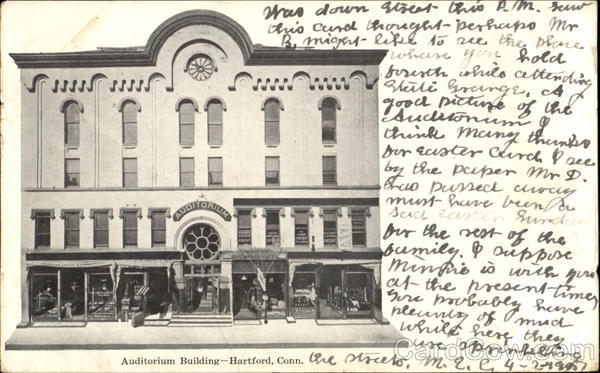 Was down street this P.M. saw
this card thought perhaps Mr
B. might like to see the place
where you hold
forth while attending
State Grange. A
good picture of the
Auditorium I
think Many thanks
for easter card. I see
by the paper Mr D.
has passed away
must have been a
sad easter Sunday
for the rest of the
family. I suppose
Minnie is with you
at the present time,
you probably have
plenty of mud
while here they
are
the streets. M. E. C. 4-2
AUDITORIUM
Auditorium Building—Hartford, Conn.
CardCow.com